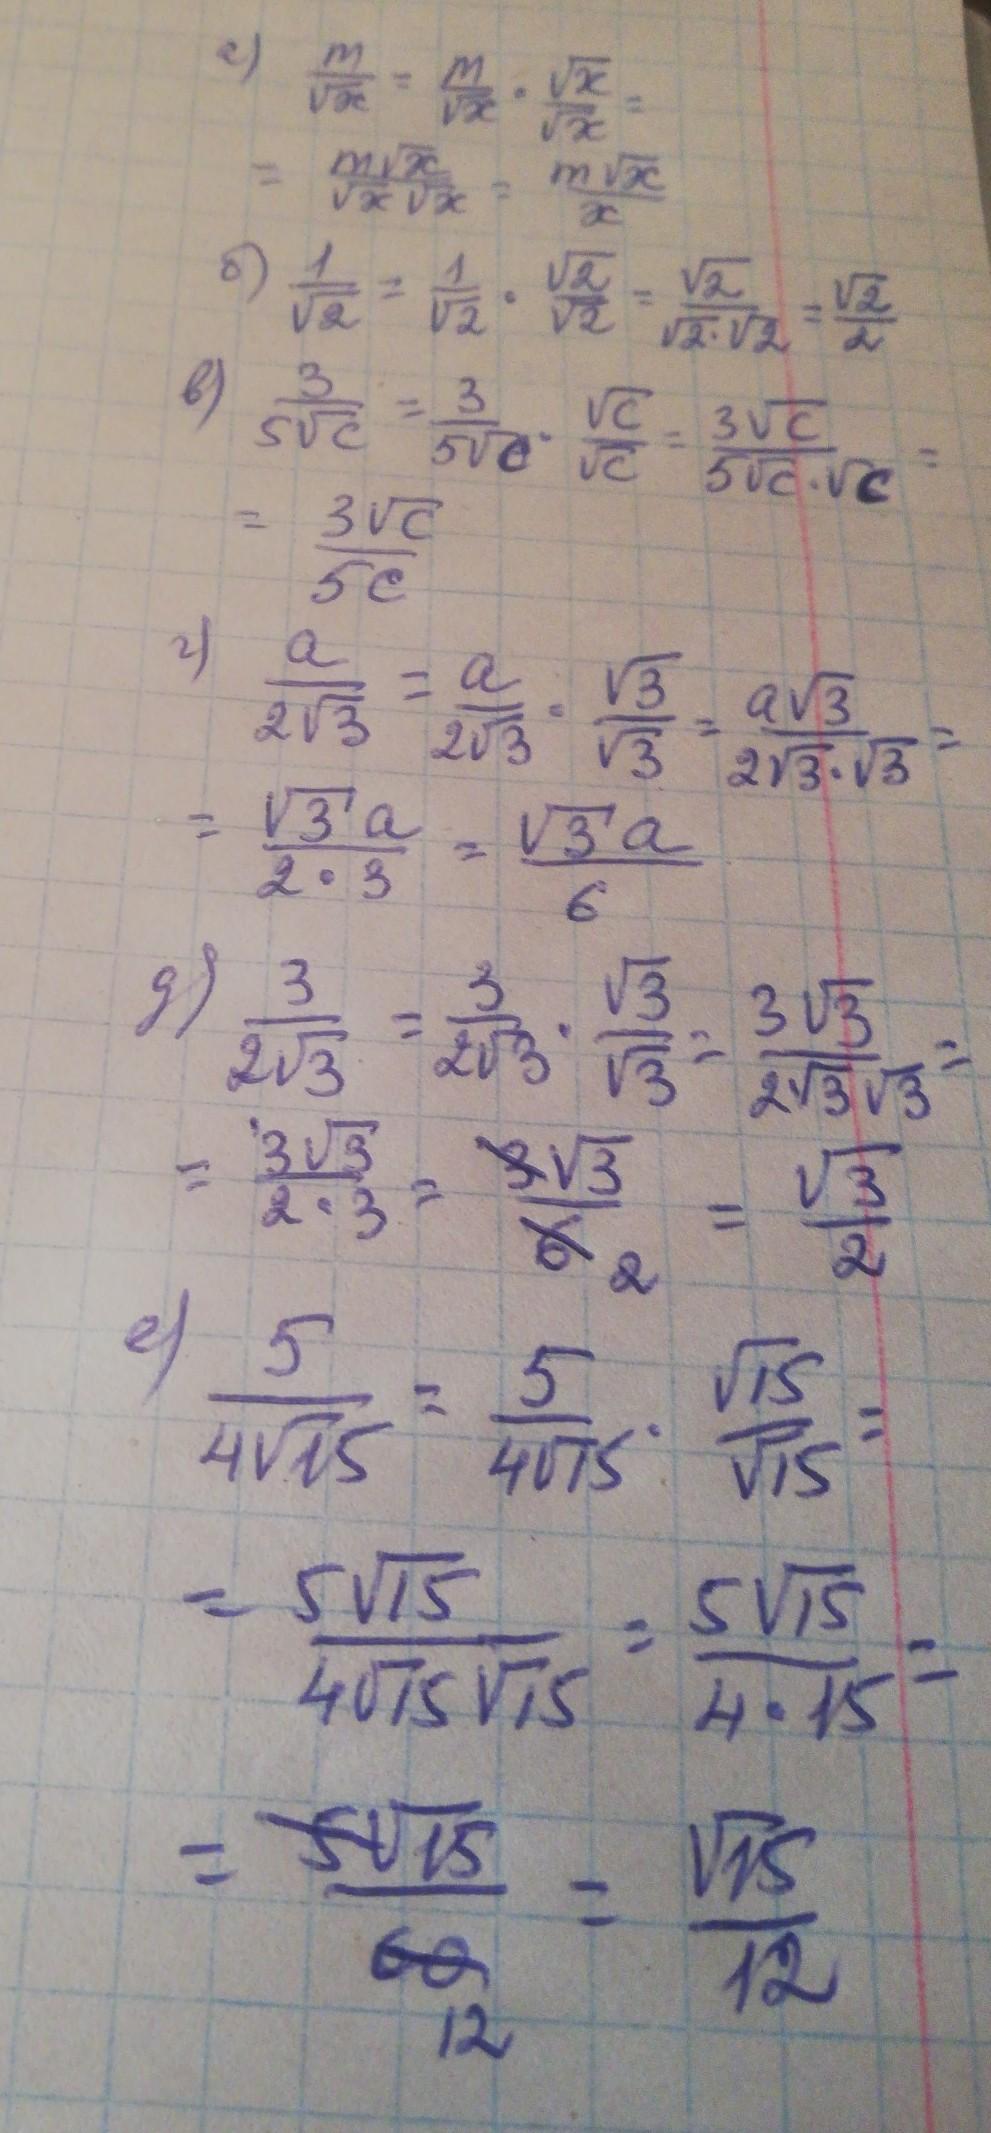 а) m/√x = m/√x · √x/√x =
= m√x/√x √x = m√x/x
б) 1/√2 = 1/√2 · √2/√2 = √2/√2·√2 = √2/2
в) 3/5√c = 3/5√c · √c/√c = 3√c/5√c·√c =
= 3√c/5c
г) a/2√3 = a/2√3 · √3/√3 = a√3/2√3·√3 =
= √3 a/2·3 = √3 a/6
д) 3/2√3 = 3/2√3 · √3/√3 = 3√3/2√3 √3 =
= 3√3/2·3 = 3√3/6 2 = √3/2
е) 5/4√15 = 5/4√15 · √15/√15 =
= 5√15/4√15 √15 = 5√15/4·15 =
= 5√15/60 12 = √15/12